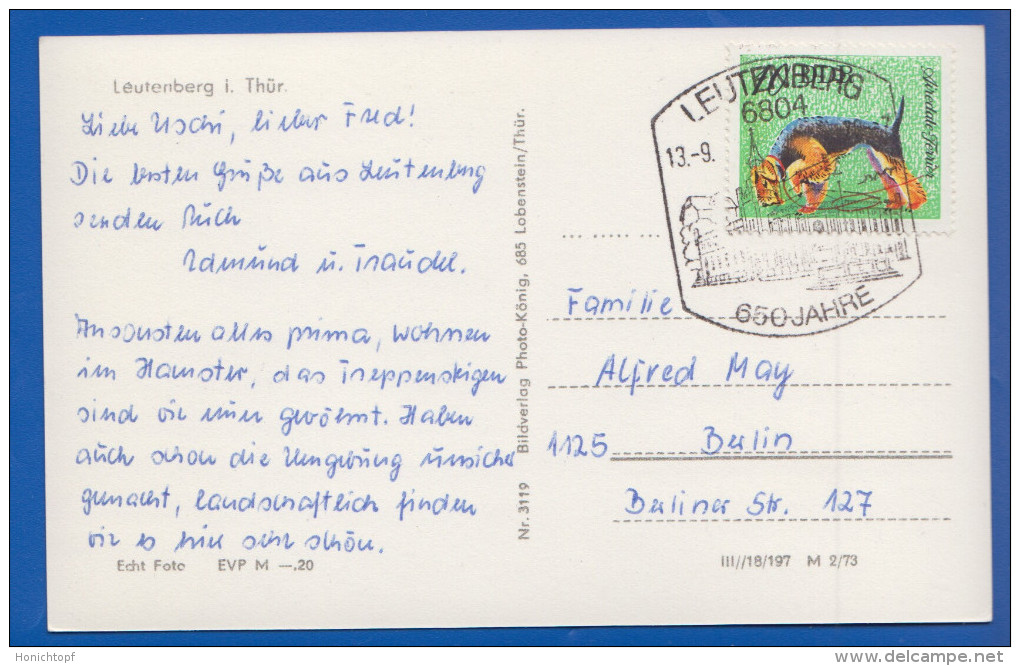 Leutenberg i. Thür.
Liebe Uschi, lieber Fred!
Die besten Grüße aus Leutenberg
senden Euch
Edmund u. Traudel.
Ansonsten alles prima, wohnen
im Hamster, das Treppensteigen
sind wir nun gewöhnt. Haben
auch schon die Umgebung unsicher
gemacht, landschaftlich finden
wir es hier sehr schön.
Echt Foto EVP M —,20
Nr. 3119 Bildverlag Photo-König, 685 Lobenstein/Thür.
DDR
Airedale-Terrier
LEUTENBERG
6804
13.-9.
650 JAHRE
Familie
Alfred May
1125 Berlin
Berliner Str. 127
III//18/197 M 2/73
Honichtopf